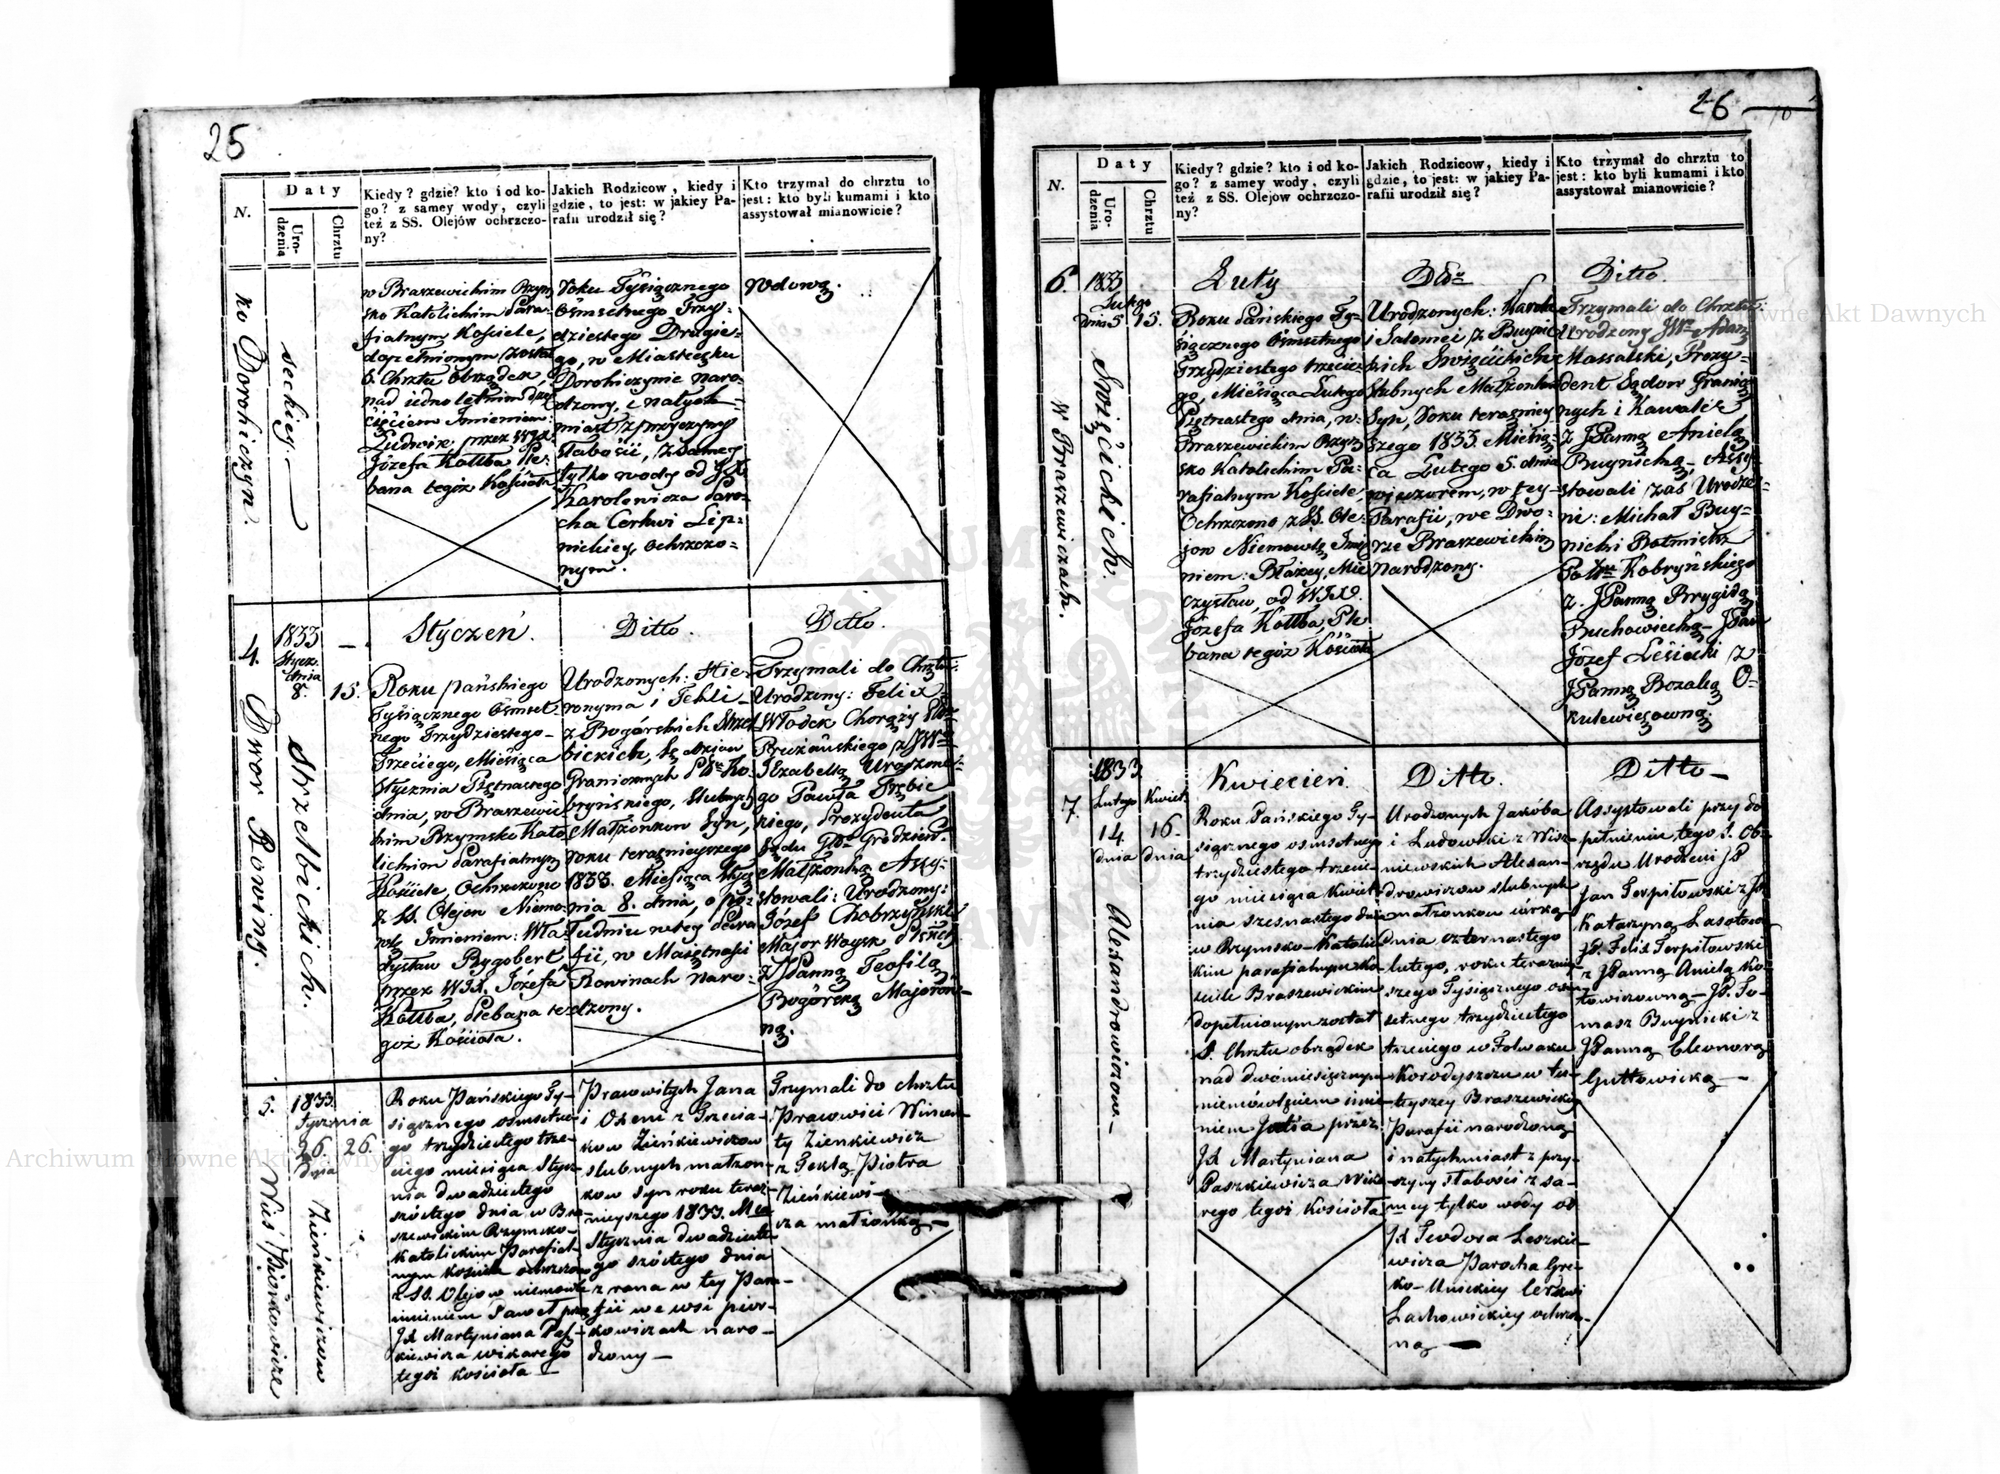 25
N.
Daty
Uro-
dzenia
Chrztu
Kiedy? gdzie? kto i od ko-
go? z samey wody, czyli
też z SS. Olejów ochrzczo-
ny?
Jakich Rodzicow, kiedy i
gdzie, to jest: w jakiey Pa-
rafii urodził się?
Kto trzymał do chrztu to
jest: kto byli kumami i kto
assystował mianowicie?
ko Dorohiczyn.
seckiey.
w Braszewickim Rzym
sko Katolickim Para-
fialnym Kościele,
dopełnionym został
S. Chrztu Obrządek,
nad iedno letnim dzie
cięciem Imieniem
Ludwik, przez WJX.
Józefa Kołłba Ple-
bana tegoż Kościoła
Roku Tysiącznego
Ośmsetnego Trzy-
dziestego Drugie-
go, w Miasteczku
Dorohiczynie naro-
dzony, i natych-
miast z przyczyny
słabości, z samey
tylko wody od JX.
Karolewicza Paro-
cha Cerkwi Lip-
nickiey, ochrzczo-
nym.
Wdową.
4.
1833
Stycz.
dnia
8.
15.
Dwor Rowiny.
Strzelbickich.
Styczeń.
Roku Pańskiego
Tysiącznego Ośmset-
nego Trzydziestego-
Trzeciego, Miesiąca
Stycznia Piętnastego
dnia, w Braszewic-
kim Rzymsko Kato-
lickim Parafialnym
Kościele, Ochrzczono
z SS. Olejow Niemo-
wle Imieniem: Wła-
dysław Rygobert
przez WJX. Józefa
Kołłba, Plebana te-
goż Kościoła.
Ditto.
Urodzonych: Hie-
ronyma i Tekli-
z Bogórskich Strzel
bickich, Sędziow
Granicznych Pttu Ko-
bryńskiego, Slubnych
Małżonkow Syn,
roku teraznieyszego
1833. Miesiąca Stycz
nia 8. dnia, o po-
łudniu w tey Para
fii, w Majętności
Rowinach naro-
dzony.
Ditto.
Trzymali do Chrztu:
Urodzony: Felix-
Włodek Chorąży Pttu
Prużańskiego z JWną
Izabellą Urodzone-
go Pawła Trębic
kiego, Prezydenta
Sądu Gło Grodzień-
Małżonką Assy-
stowali: Urodzony:
Józef Chobrzyński
Major Woysk
z JPanną Teofilą
Bogórską Majorow-
ną.
5.
1833.
Stycznia
26.
dnia
26.
Wieś Piorkowicze
Zieńkiewiczow
Roku Pańskiego Ty-
siącznego osmsetne-
go trzydziestego trze-
ciego miesiąca Stycz-
nia dwadziestego
szóstego dnia w Bra-
szewickim Rzymsko-
katolickim Parafial-
nym kościele ochrzczono
z SS. Olejow niemowle
imieniem Paweł przez
JX Martyniana Pasz-
kiewicza wikarego
tegoż kościoła
Prawowitych Jana
i Oxeni z Trzecia-
kow Zieńkiewiczow
slubnych małżon-
kow syn roku teraz-
nieyszego 1833. Mca
Stycznia dwadzieste-
go szóstego dnia
z rana w tey Para-
fii we wsi pior-
kowiczach naro-
dzony-
Trzymali do chrztu
Prawowici Wincen-
ty Zienkiewicz
z Teklą Piotra
Zieńkiewi-
cza małżonką.-
26
10
N.
Daty
Uro-
dzenia
Chrztu
Kiedy? gdzie? kto i od ko-
go? z samey wody, czyli
też z SS. Olejów ochrzczo-
ny?
Jakich Rodzicow, kiedy i
gdzie, to jest: w jakiey Pa-
rafii urodził się?
Kto trzymał do chrztu to
jest: kto byli kumami i kto
assystował mianowicie?
6.
1833
Lutego
dnia 5
15.
w Braszewiczach.
Swięcickich.
Luty
Roku Pańskiego Ty-
siącznego Ośmsetnego
Trzydziestego trzecie
go, Miesiąca Lutego
Piętnastego dnia, w
Braszewickim Rzym
sko Katolickim Pa-
rafialnym Kościele,
Ochrzczono z SS. Ole-
jow Niemowlę Imie
niem: Błażey, Mie
czysław, od WJXD.
Józefa Kołłba, Ple
bana tegoż Kościoła
Dtto
Urodzonych: Karola
i Salomei z Buynic
kich Swięcickich
slubnych Małżonkow
Syn, Roku teraźniey
szego 1833. Miesią-
ca Lutego 5. dnia
wieczorem, w tey-
Parafii, we Dwo-
rze Braszewickim
Narodzony.
Ditto.
Trzymali do Chrztu:
Urodzony JWny Adam
Massalski, Prezy-
dent Sądow Granicz
nych i Kawaler
z JPanną Anielą
Buynicką, Assy-
stowali zaś Urodze-
ni: Michał Buy-
nicki Rotmistrz
Pttu Kobryńskiego
z JPanną Brygidą
Buchowiecką - JPan
Józef Lesiecki z
JPanną Rozalią O-
kulewiczowną.
7.
1833.
Lutego
14
dnia
Kwiet.
16.
dnia
Alexandrowiczow-
Kwiecień.
Roku Pańskiego Ty-
siącznego osmsetnego
trzydziestego trzecie
go miesiąca kwiet-
nia szesnastego dnia
w Rzymsko-Katolic-
kim parafialnym ko-
ściele Braszewickim
dopełnionym został
S. Chrztu obrządek
nad dwómiesięcznym
niemówlęciem imie
niem Julia przez
JX Martyniana
Paszkiewicza Wika-
rego tegoż kościoła
Ditto.
Urodzonych Jakóba
i Ludowiki z Wisz-
niewskich Alexan-
drowiczow slubnych
małżonkow córka
dnia czternastego
lutego, roku teraźniey
szego Tysiącznego osm
setnego trzydziestego
trzeciego w Folwarku
Korodyszczu w tu-
teyszey Braszewickiey
Parafii narodzoną
i natychmiast z przy-
czyny słabości z sa-
mey tylko wody od
JX Teodora Leszkie-
wicza Parocha Gre-
ko-Unickiey Cerkwi
Lachowickiey ochrzczo-
ną-
Ditto-
Assystowali przy do
pełnieniu tego S. Ob-
rzędu Urodzeni JP
Jan Terpiłowski z JP
Katarzyną Lasotową
JP. Felix Terpiłowski
z JPanną Anielą Ko-
towiczowną - JP. To-
masz Buynicki z
JPanną Eleonorą
Guttowicką-
Archiwum Główne Akt Dawnych
Archiwum Główne Akt Dawnych